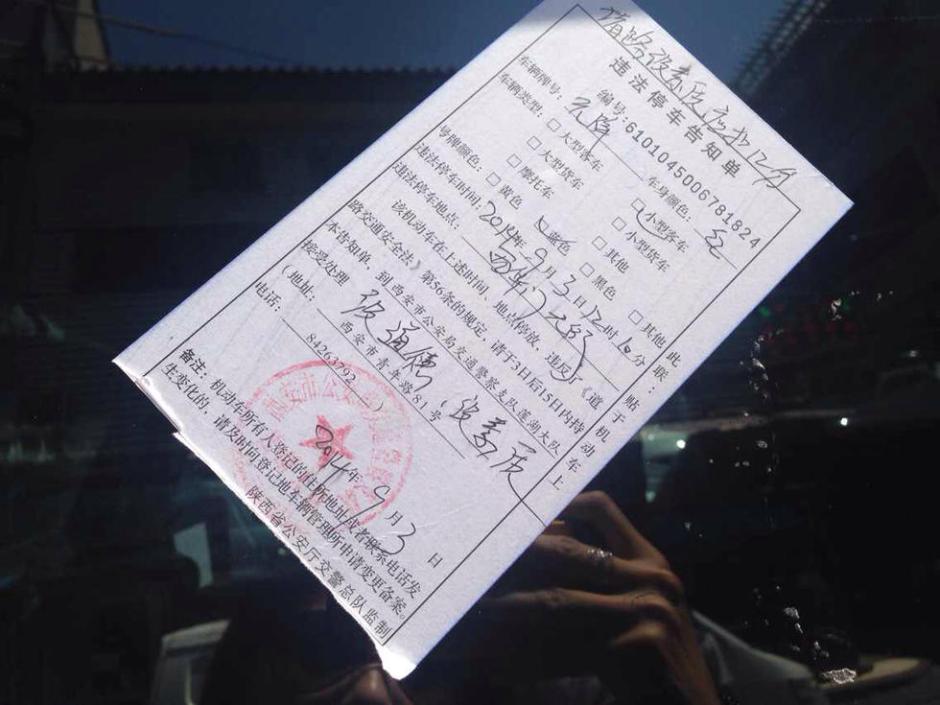 堵路没素质应扣12分
违法停车告知单
编号:6101045006781824
车辆牌号: 无牌 车身颜色: 红
车辆类型: □大型客车 □小型客车
□大型货车 □小型货车
□摩托车 □其他 □其他
号牌颜色: □黄色 □蓝色 □黑色
违法停车时间: 2014年9月3日12时10分
违法停车地点:
该机动车在上述时间、地点停放,违反了《道
路交通安全法》第56条的规定,请于3日后15日内持
本告知单,到西安市公安局交通警察支队莲湖大队
接受处理 没道德 没素质
(地址: 西安市青年路81号
电话: 84263792 )
西安市公安局
2014年9月3日
备注:机动车所有人登记的住所地址或者联系电话发
生变化的,请及时向登记地车辆管理所申请变更备案。
陕西省公安厅交警总队监制
此联:贴于机动车上